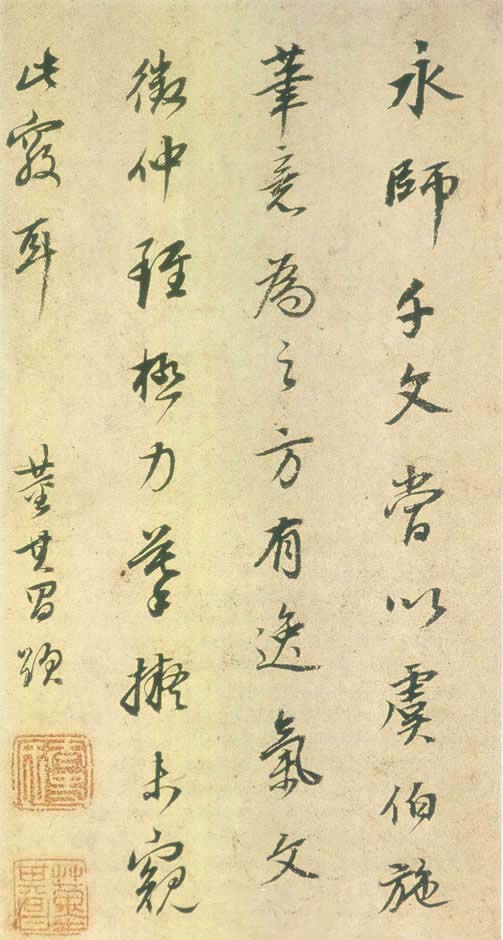 永師千文當以虞伯施
筆意為之方有逸氣文
徵仲雖極力摹擬未窺
此竅耳
董其昌題